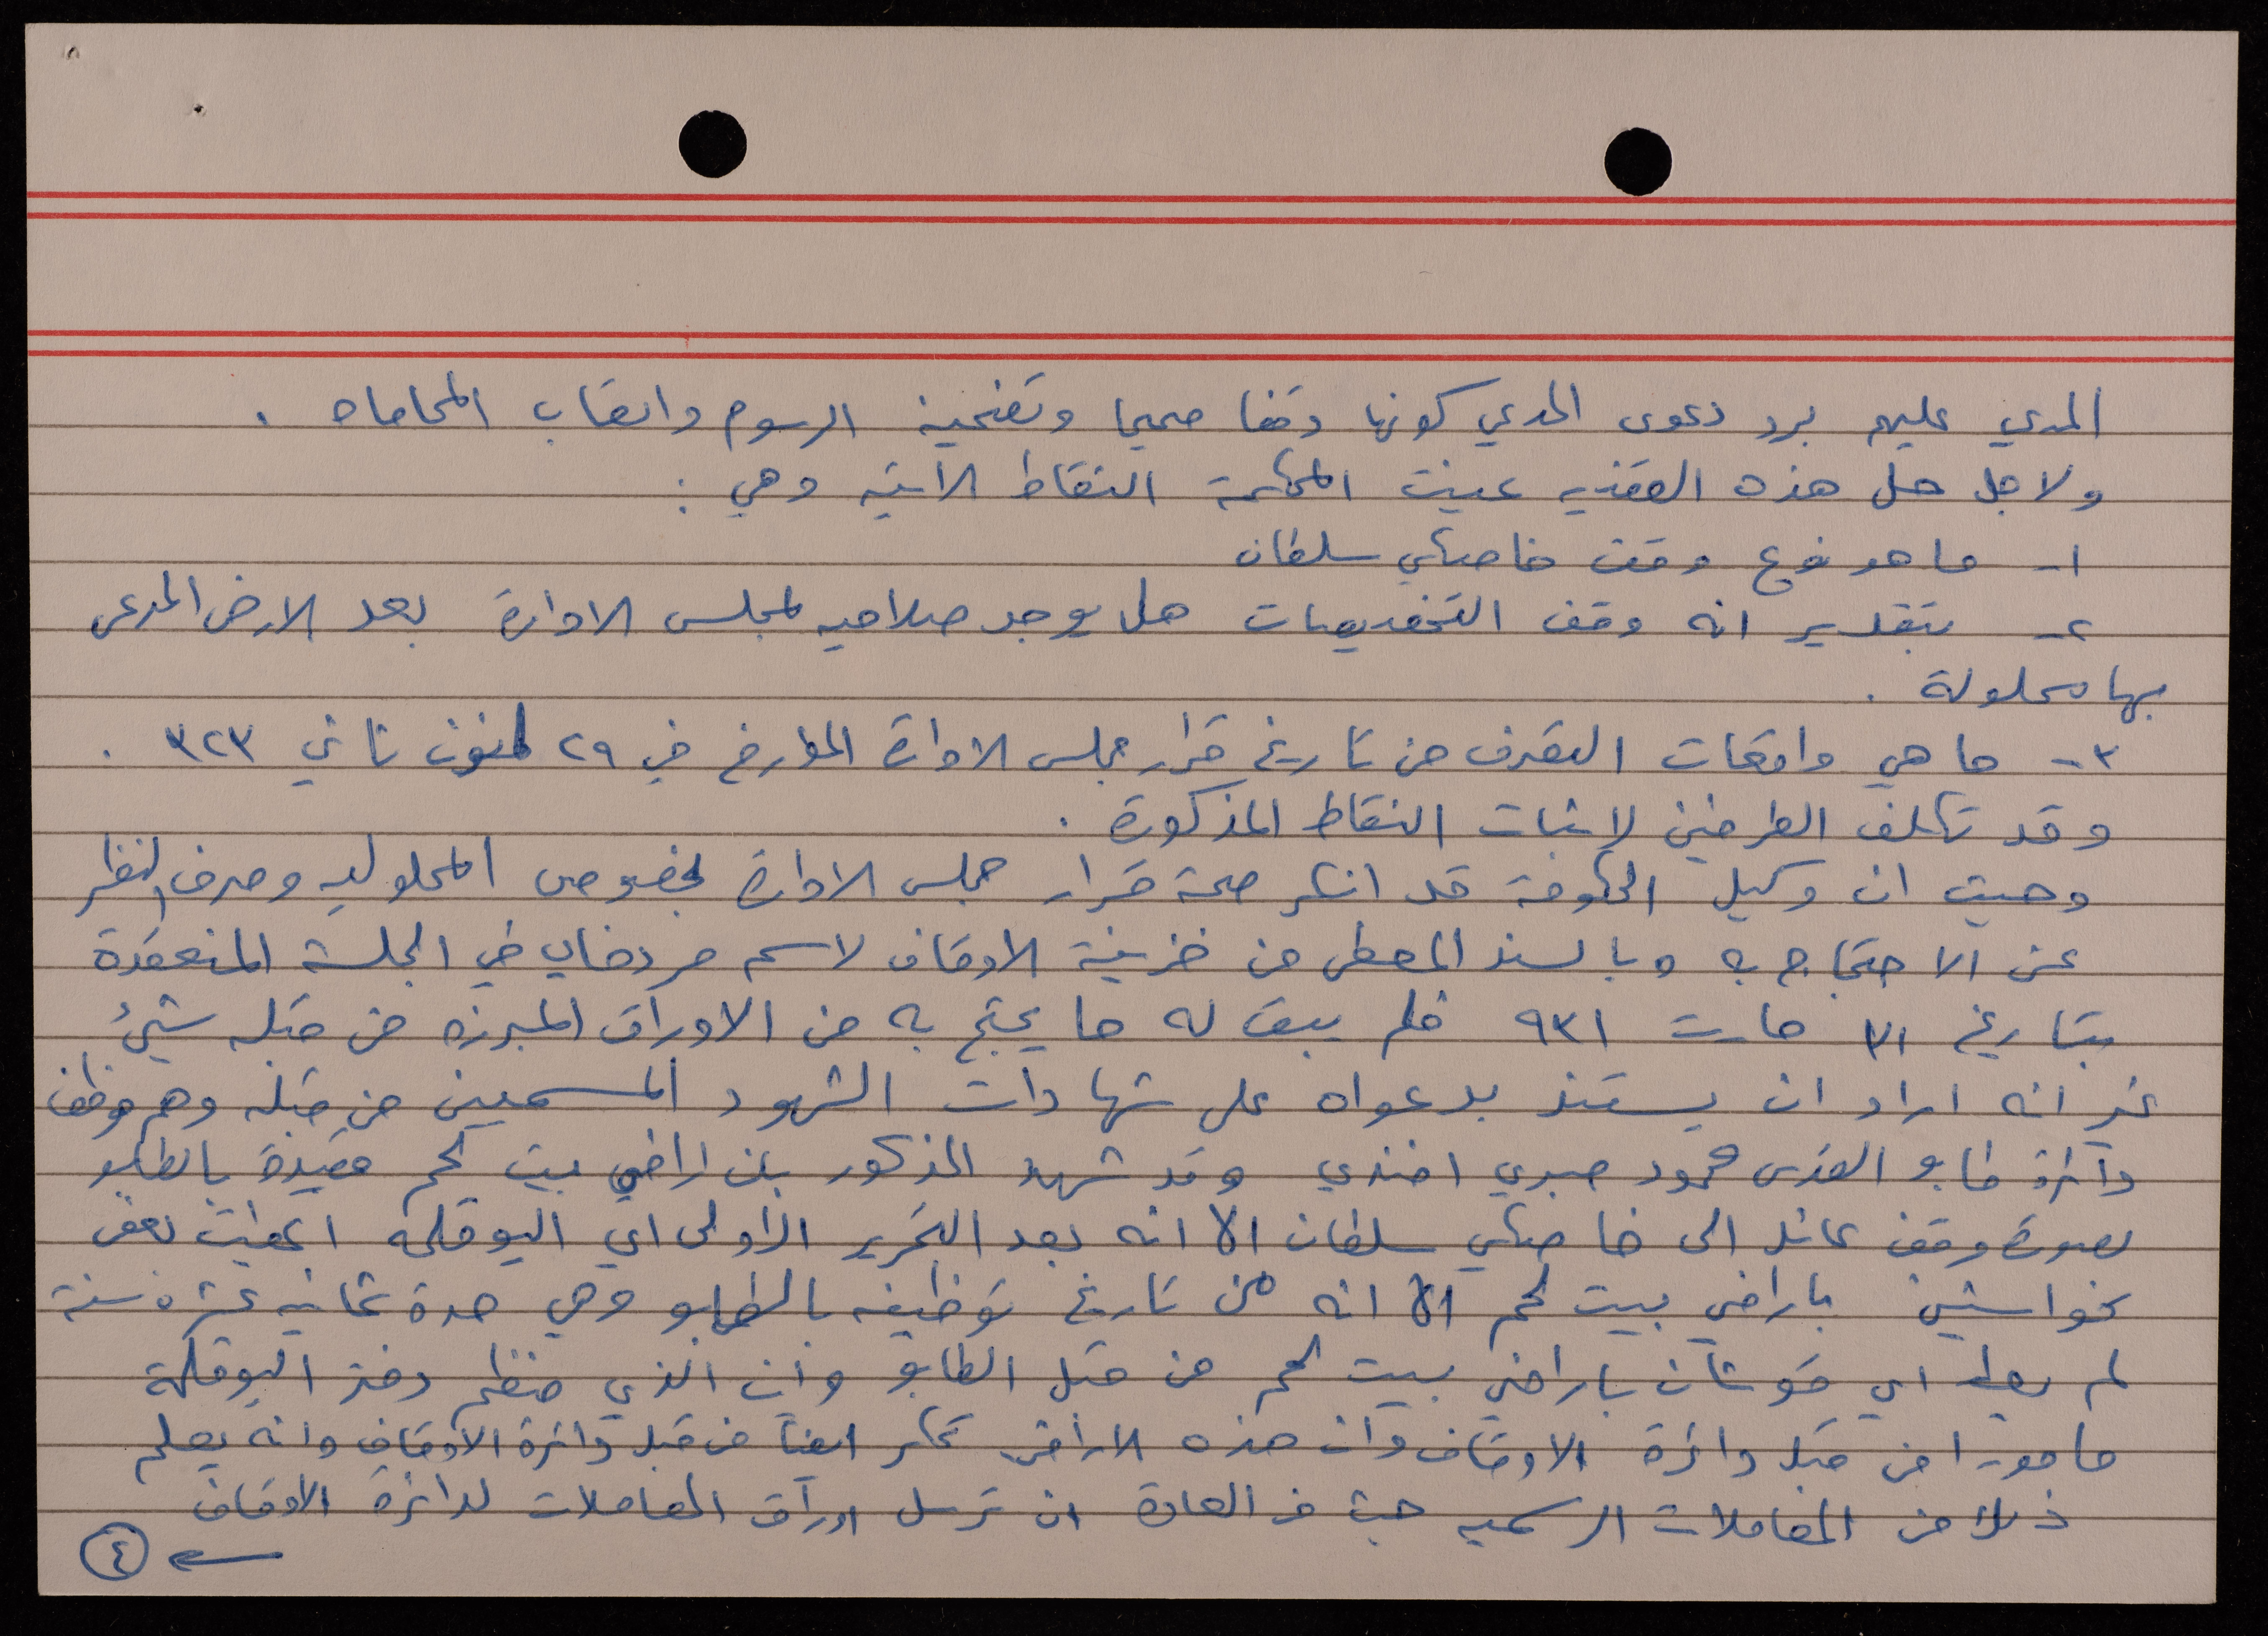 المدعي عليهم برد دعوى المدعي كونها وقفا صحيحا وتضمينه الرسوم واتعاب المحاماه .
ولاجل حل هذه القضيه عينت المحكمة النقاط الاتيه وهي :
١- ما هو نوع وقف خاصكي سلطان
٢- بتقدير انه وقف التخصيصات هل يوجد صلاحيه لمجلس الادارة بعد الارض المدعى
بها محلولة .
٣- ما هي واقعات التصرف من تاريخ قرار مجلس الادارة المؤارخ في ٢٩ كنون ثاني ٣٢٣ .
وقد تكلف الطرفين لاثبات النقاط المذكورة .
وحيث ان وكيل الحكومة قد انكر صحة قرار مجلس الادارة بخصوص المحلوليه وصرف النظر
عن الاحتجاج به وبالسند المعطى من خزينة الاوقاف لاسم مردخاي في الجلسة المنعقدة
بتاريخ ٣١ مارت ٩٣١ فلم يبق له ما يحتج به من الاوراق المبرزه من قبله شيئ
غير انه اراد ان يستند بدعواه على شهادات الشهود المسميين من قبله وهم موظف
دائرة طابو القدس محمود صبري افندي وقد شهد المذكور بان اراضي بيت لحم مقيدة بالطابو
بصورة وقف عائد الى خاصكي سلطان الا انه بعد التحرير الاولى اي اليوقلمه اعطيت بعض
خواشين باراضي بيت لحم الا انه من تاريخ توظيفه بالطابو وهي مدة ثمانيه عشره سنة
لم يعط اي قوشان باراضي بيت لحم من قبل الطابو وان الذي منظم دفتر اليوقلمة
مامورا من قبل دائرة الاوقاف وان هذه الاراضي تحكر ايضاً من قبل دائرة الاوقاف وانه يعلم
ذلك من المعاملات الرسميه حيث من العادة ان ترسل اوراق المعاملات لدائرة الاوقاف
٤